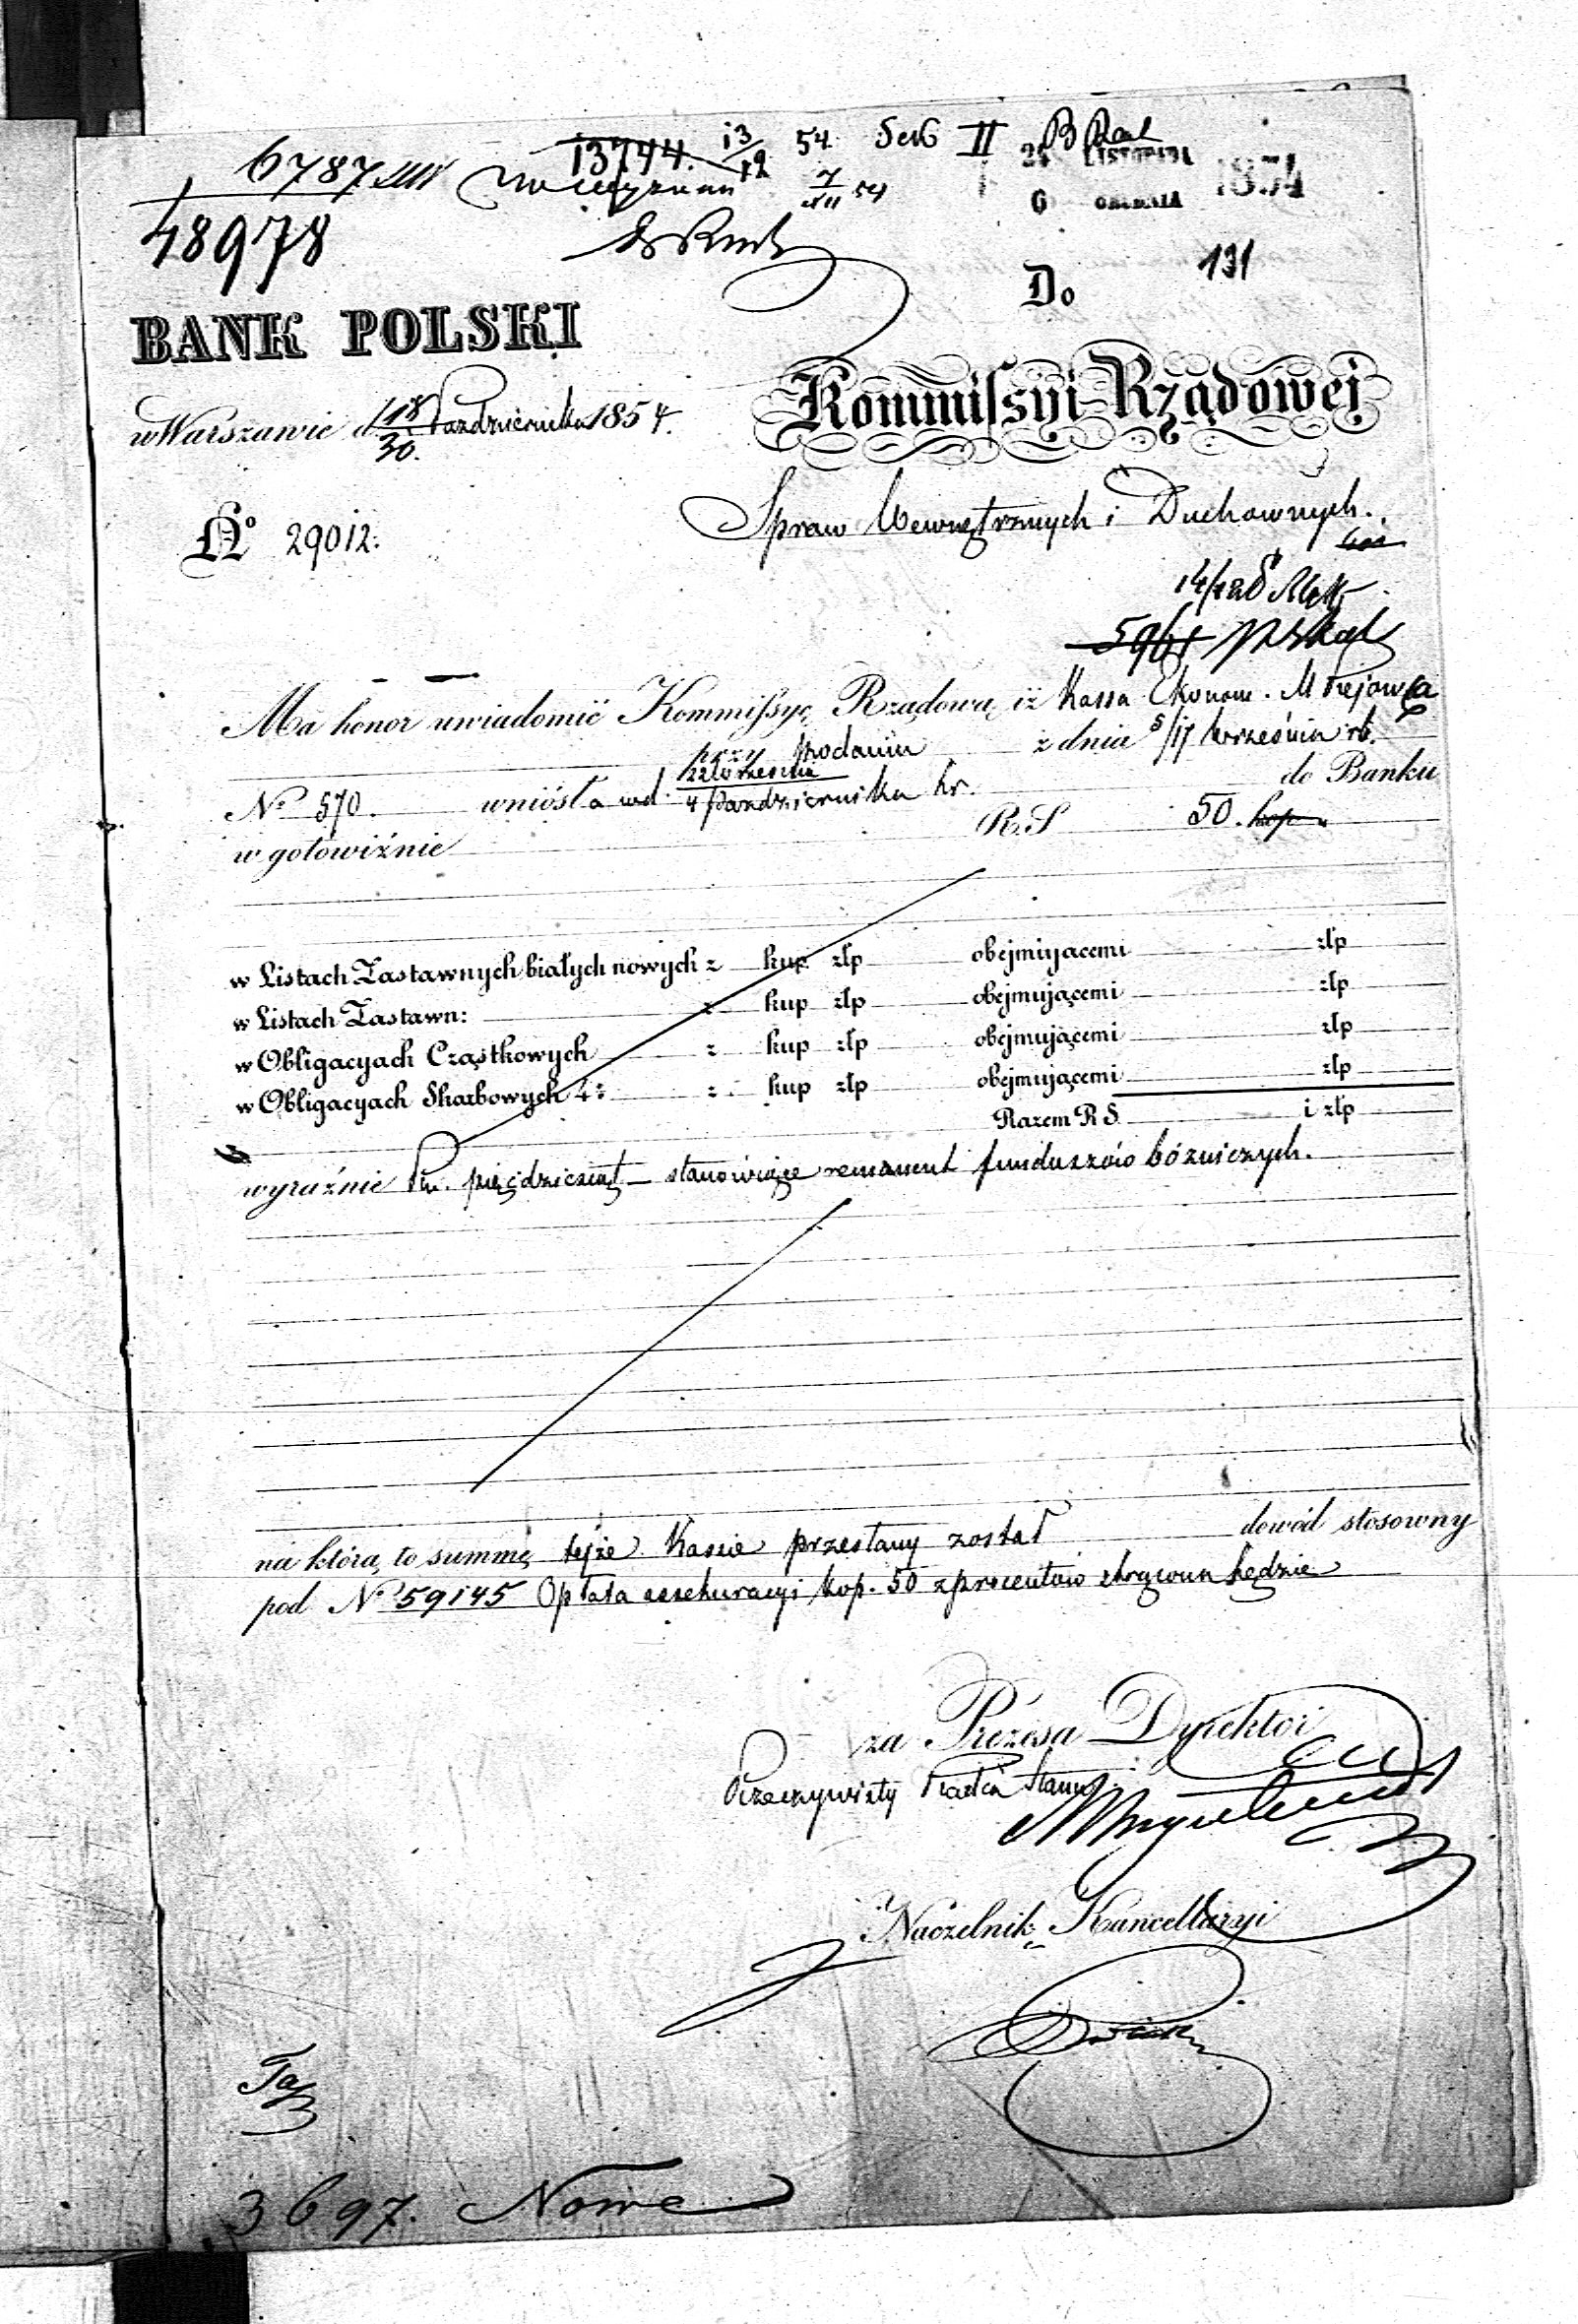 6787
48978
13744. 13/12 54 Sek II
7/XII 54
24 LISTOPADA
6 GRUDNIA 1854
131
BANK POLSKI
w Warszawie d 18/30. Października 1854.
Do
Kommissyi Rządowej
Spraw Wewnętrznych i Duchownych.
No 29012.
Ma honor uwiadomić Kommissyę Rządową iż Kassa Ekonom. M Kiejowa
przy podaniu z dnia 5/17 Września rb.
No 570. wniosła wd. 22 Września / 4 Października br. do Banku
w gotowiźnie R.S 50. kop "
w Listach Zastawnych białych nowych z kup złp obejmującemi złp
w Listach Zastawn: z kup złp obejmującemi złp
w Obligacyach Cząstkowych z kup złp obejmującemi złp
w Obligacyach Skarbowych 4: z kup złp obejmującemi złp
Razem R S. i złp
wyraźnie pięćdziesiąt stanowiące remanent funduszów bóżniczych.
na którą to summę tejże Kassie przesłany został dowód stosowny
pod No 59145 Opłata assekuracyi kop. 50 z procentów strącona będzie
za Prezesa Dyrektor
Rzeczywisty Radca Stanu
Naczelnik Kancellaryi
3697. Nowe